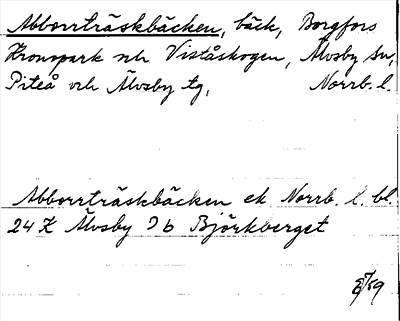 Abborrträskbäcken, bäck, Borgfors
Kronopark och Viståskogen, Älvsby sn,
Piteå och Älvsby tg, Norrb. l.
Abborrträskbäcken ek Norrb. l. bl.
24 K Älvsby 9 b Björkberget